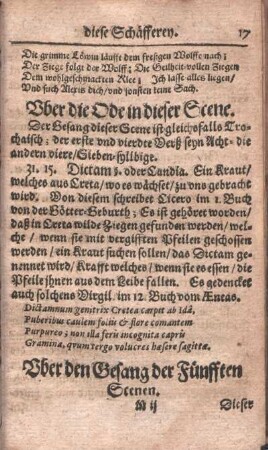 diese Schäfferey. 17
Die grimme Löwin läufft dem freßgen Wolffe nach;
Der Ziege folgt der Wolff; Die Geilheit vollen Ziegen
Dem wohlgeschmackten Klee; Ich lasse alles ligen/
Und such Alexis dich/ und sonsten keine Sach.
Uber die Ode in dieser Scene.
Der Gesang dieser Scene ist gleichsfalls Tro-
chaisch: der erste und vierdte Verß seyn Acht- die
andern viere/ Sieben-sylbige.
31. 15. Dictam ꝛ. oder Candia. Ein Kraut/
welches aus Creta/ wo es wächset/ zu uns gebracht
wird. Von diesem schreibet Cicero im 2. Buch
von der Götter-Geburth; Es ist gehöret worden/
daß in Creta wilde Ziegen gefunden werden/ wel-
che/ wenn sie mit vergifften Pfeilen geschossen
werden/ ein Kraut suchen sollen/ das Dictam ge-
nennet wird/ Krafft welches/ wenn sie es essen/ die
Pfeile ihnen aus dem Leibe fallen. Es gedencket
auch solchens Virgil. im 12. Buch vom Æneas.
Dictamnum genitrix Cretea carpit ab Idâ,
Puberibus caulem foliis & flore comantem
Purpureo; non illa feris incognita capris
Gramina, qvum tergo volucres hæsere sagittæ.
Uber den Gesang der Fünfften
Scenen.
M ij Dieser